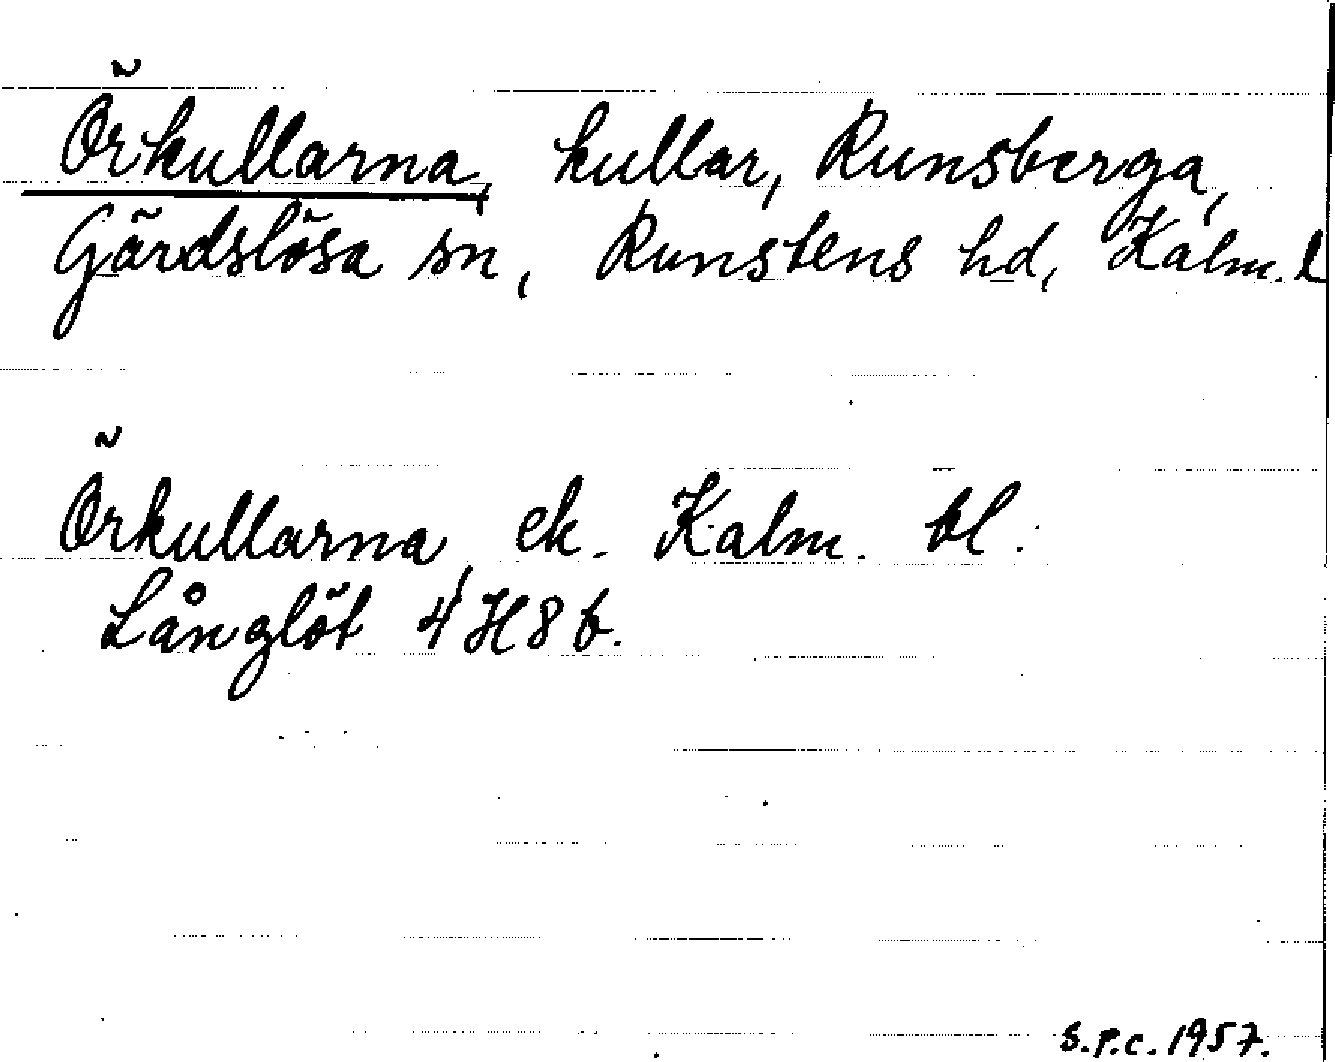 Örkullarna, kullar, Runsberga,
Gärdslösa sn, Runstens hd, Kalm. l
Örkullarna, ek. Kalm. bl.
Långlöt 4 H 8 b.
S.P.C. 1957.